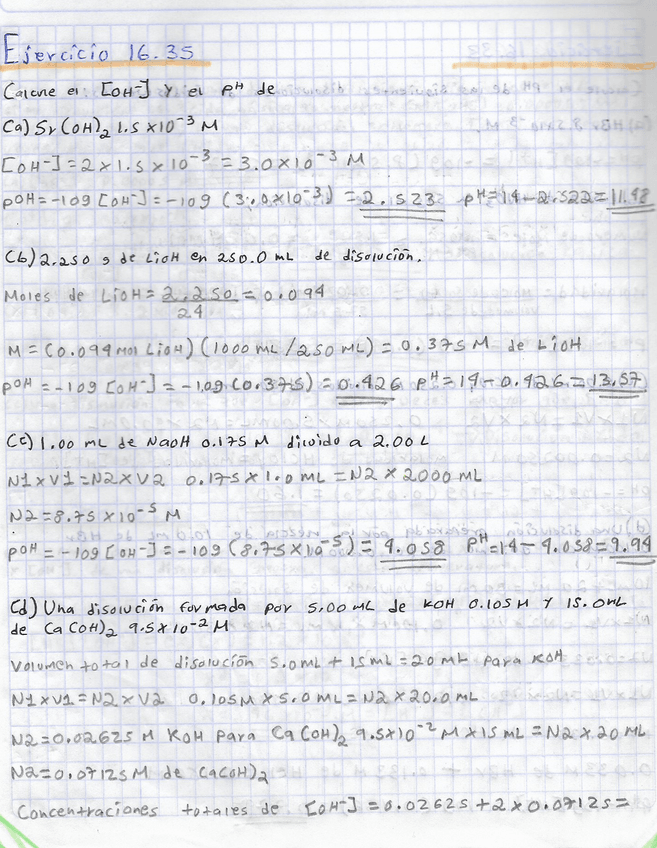 Ejercicio 16.35
Calcule el [OH⁻] y el pH de
(a) Sr(OH)₂ 1.5 x10⁻³ M
[OH⁻] = 2 x 1.5 x 10⁻³ = 3.0 x 10⁻³ M
pOH = -log [OH⁻] = -log (3.0 x10⁻³) = 2.523 pH = 14 - 2.522 = 11.48
(b) 2.250 g de LiOH en 250.0 mL de disolución.
Moles de LiOH = 2.250 / 24 = 0.094
M = (0.094 mol LiOH) (1000 mL / 250 mL) = 0.375 M de LiOH
pOH = -log [OH⁻] = -log (0.375) = 0.426 pH = 14 - 0.426 = 13.57
(c) 1.00 mL de NaOH 0.175 M diluido a 2.00 L
N1 x V1 = N2 x V2 0.175 x 1.0 mL = N2 x 2000 mL
N2 = 8.75 x 10⁻⁵ M
pOH = -log [OH⁻] = -log (8.75 x 10⁻⁵) = 4.058 pH = 14 - 4.058 = 9.94
(d) Una disolución formada por 5.00 mL de KOH 0.105 M y 15.0 mL
de Ca(OH)₂ 9.5 x10⁻² M
Volumen total de disolución 5.0 mL + 15 mL = 20 mL para KOH
N1 x V1 = N2 x V2 0.105 M x 5.0 mL = N2 x 20.0 mL
N2 = 0.02625 M KOH para Ca(OH)₂ 9.5 x10⁻² M x 15 mL = N2 x 20 mL
N2 = 0.07125 M de Ca(OH)₂
Concentraciones totales de [OH⁻] = 0.02625 + 2 x 0.07125 =